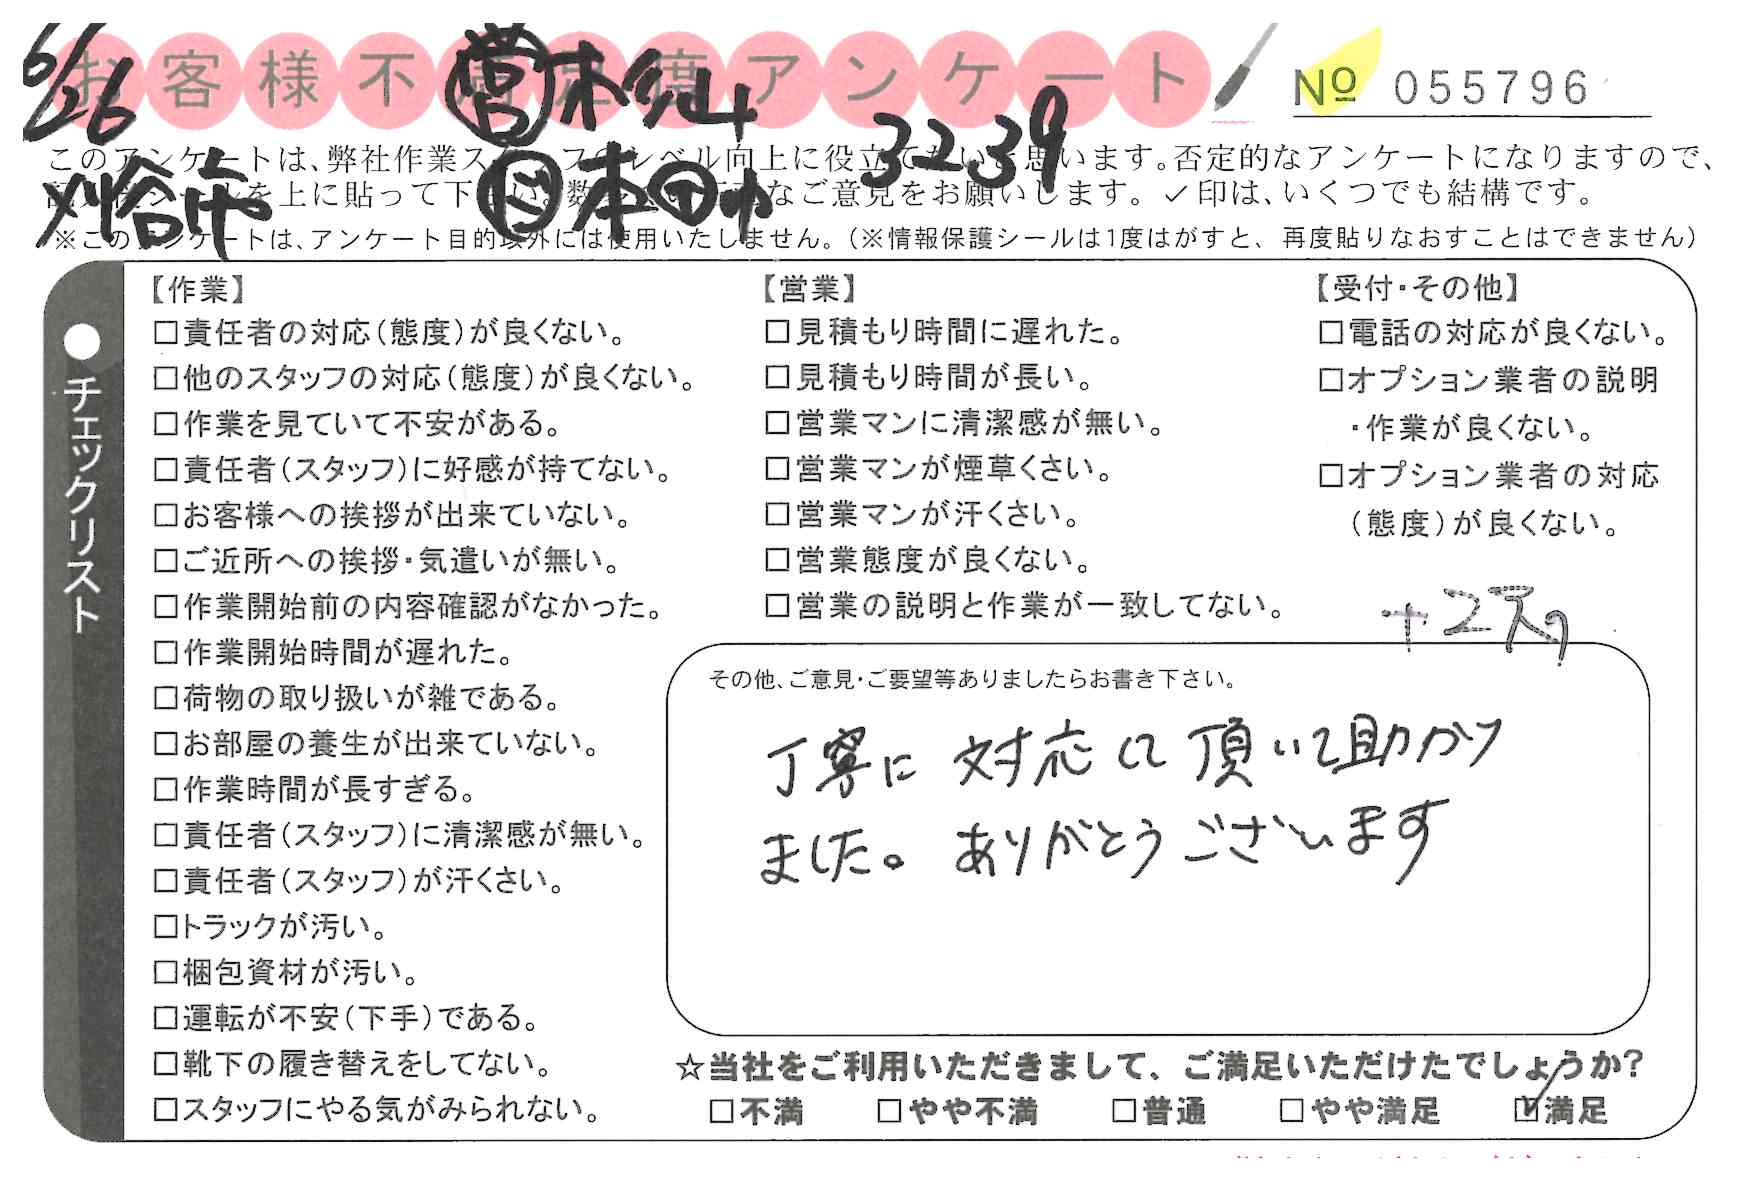 お客様不満足度アンケート
№ 055796
6/26
営
3239
刈谷市
ド 本田
このアンケートは、弊社作業スタッフのレベル向上に役立てたいと思います。否定的なアンケートになりますので、
を上に貼って下さい。数 なご意見をお願いします。✓印は、いくつでも結構です。
※このアンケートは、アンケート目的以外には使用いたしません。(※情報保護シールは1度はがすと、再度貼りなおすことはできません)
●チェックリスト
【作業】
□責任者の対応(態度)が良くない。
□他のスタッフの対応(態度)が良くない。
□作業を見ていて不安がある。
□責任者(スタッフ)に好感が持てない。
□お客様への挨拶が出来ていない。
□ご近所への挨拶・気遣いが無い。
□作業開始前の内容確認がなかった。
□作業開始時間が遅れた。
□荷物の取り扱いが雑である。
□お部屋の養生が出来ていない。
□作業時間が長すぎる。
□責任者(スタッフ)に清潔感が無い。
□責任者(スタッフ)が汗くさい。
□トラックが汚い。
□梱包資材が汚い。
□運転が不安(下手)である。
□靴下の履き替えをしてない。
□スタッフにやる気がみられない。
【営業】
□見積もり時間に遅れた。
□見積もり時間が長い。
□営業マンに清潔感が無い。
□営業マンが煙草くさい。
□営業マンが汗くさい。
□営業態度が良くない。
□営業の説明と作業が一致してない。
【受付・その他】
□電話の対応が良くない。
□オプション業者の説明
・作業が良くない。
□オプション業者の対応
(態度)が良くない。
その他、ご意見・ご要望等ありましたらお書き下さい。
丁寧に対応して頂いて助かり
ました。ありがとうございます
☆当社をご利用いただきまして、ご満足いただけたでしょうか?
□不満 □やや不満 □普通 □やや満足 ☑満足